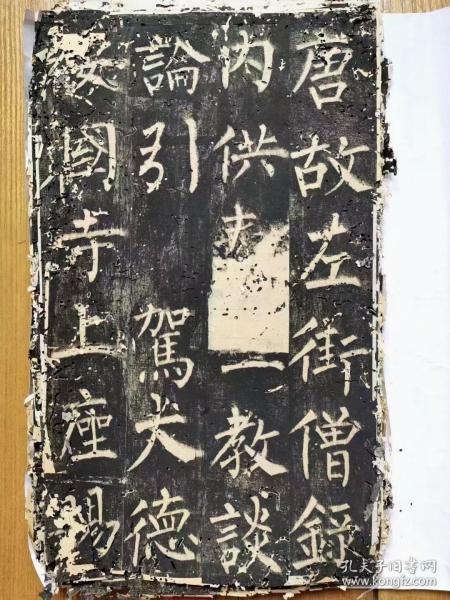 唐故左街僧録
内供教談
論引駕大德
安國寺上座賜
孔夫子旧书网
www.kongfz.com